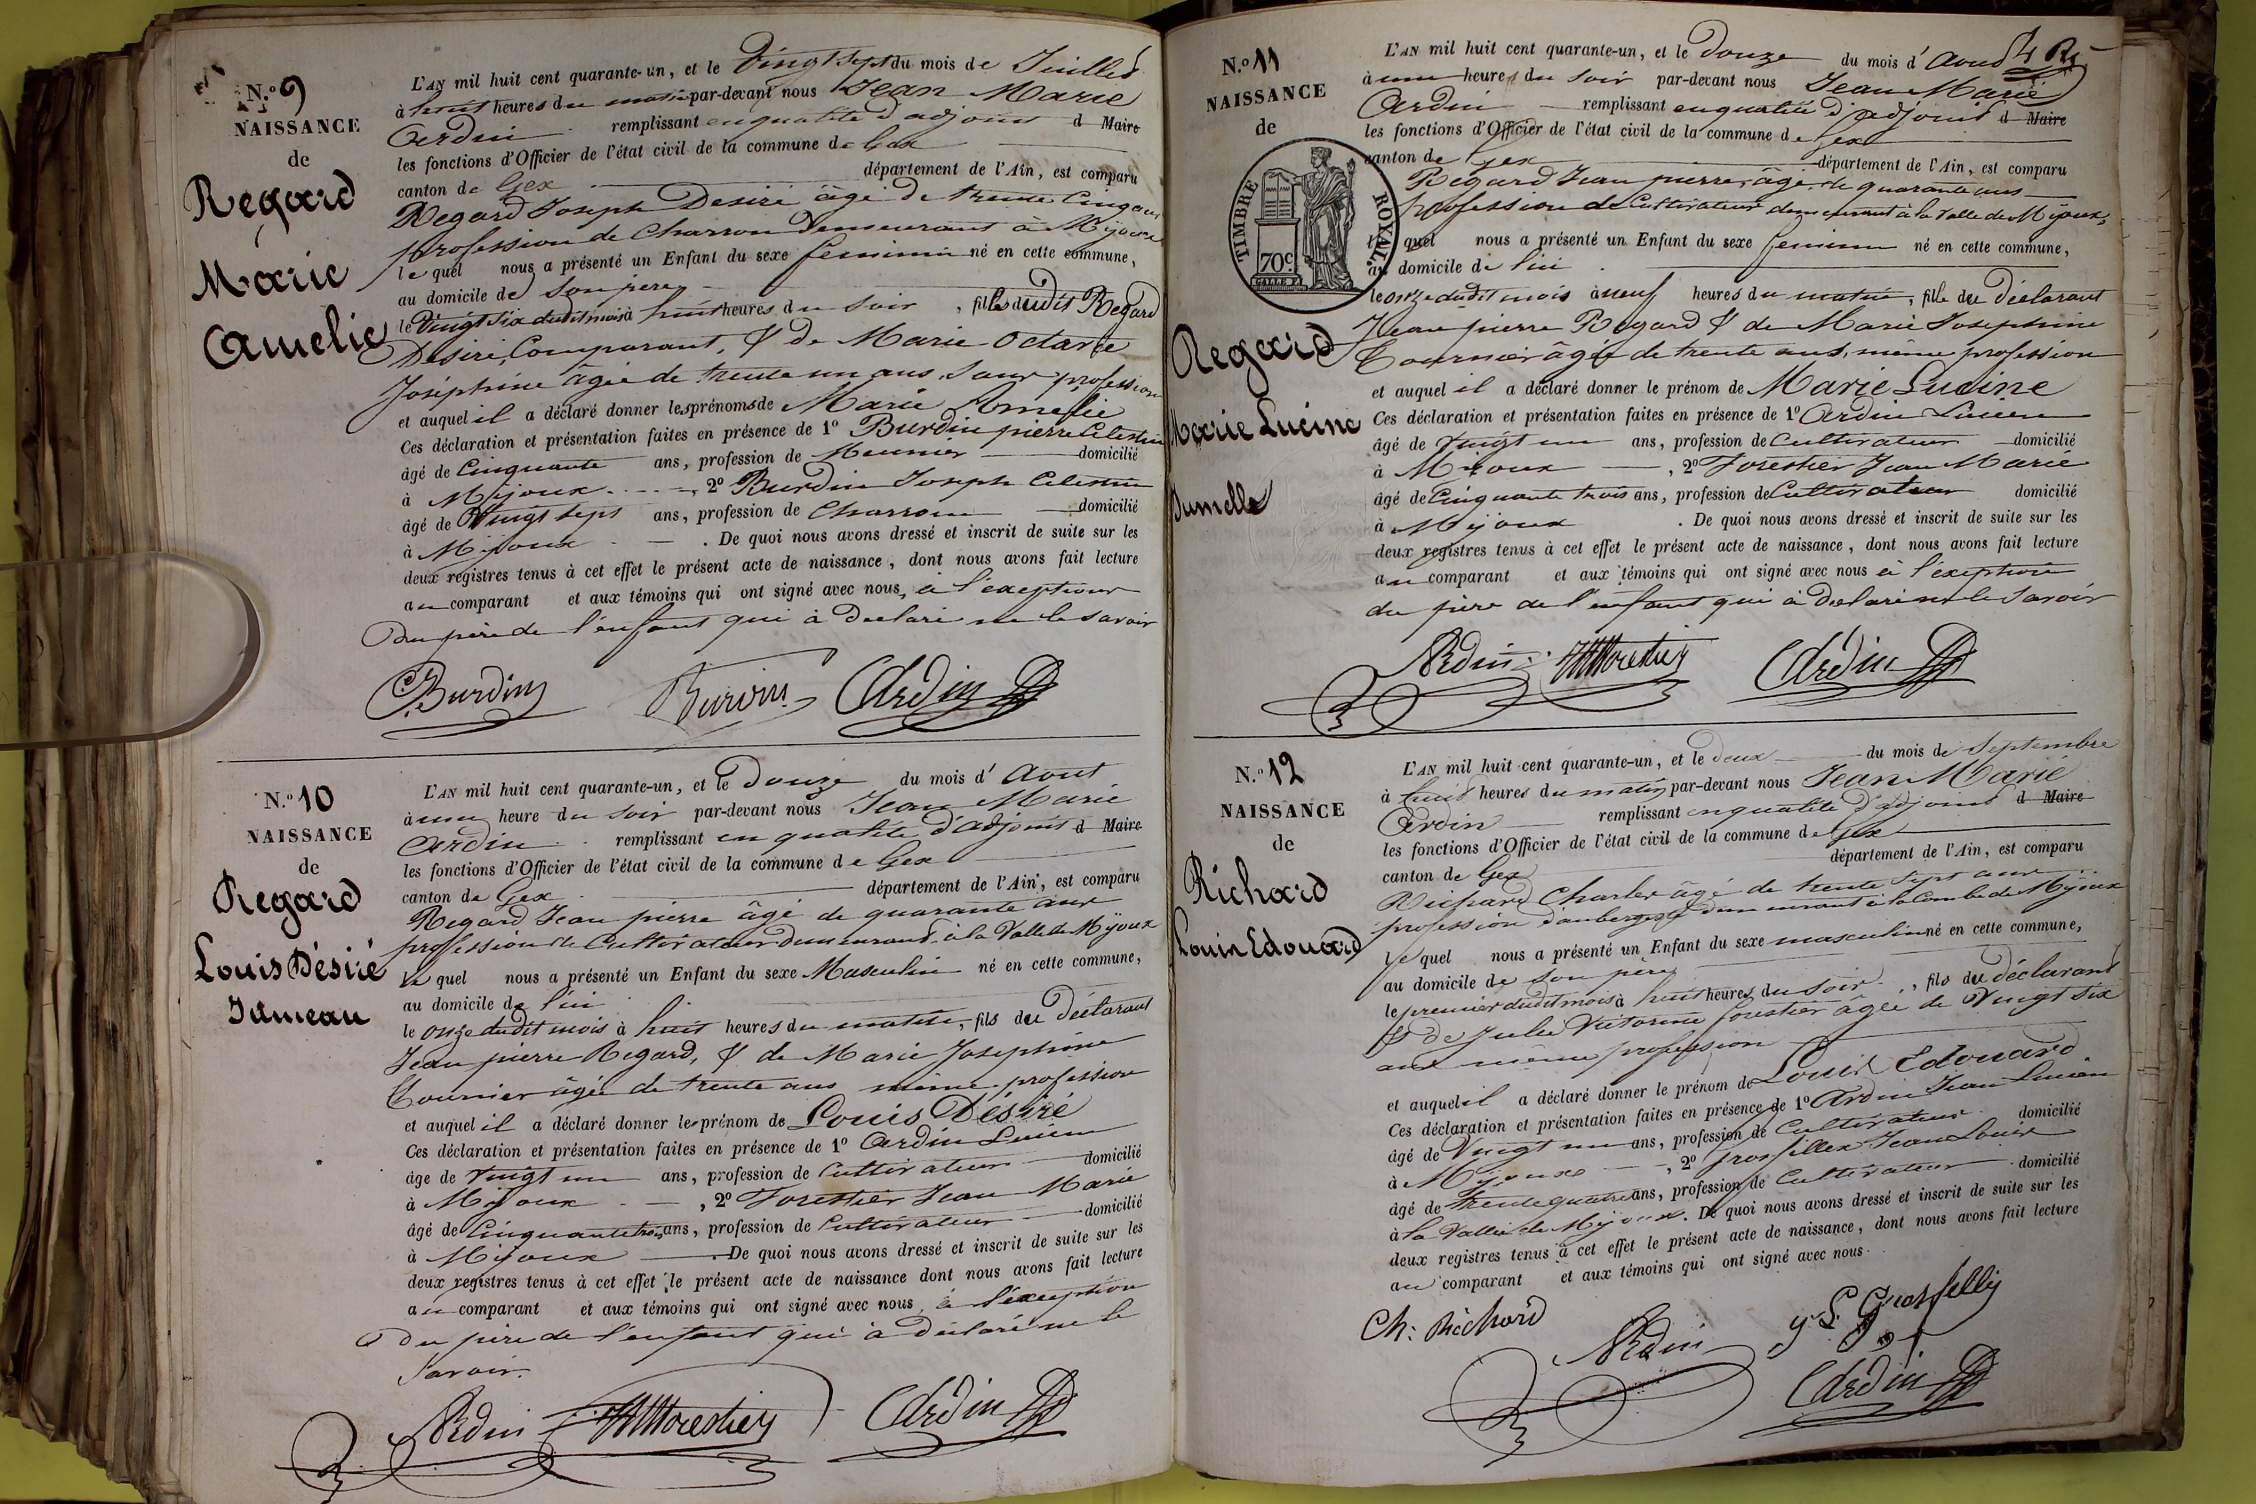 N.º 9
NAISSANCE
de
Regard
Marie
Amelie
L'AN mil huit cent quarante-un, et le Vingt sept du mois de Juillet
à huit heures du matin par-devant nous Jean Marie
Ardin remplissant en qualité d'adjoint d Maire
les fonctions d'Officier de l'état civil de la commune de Gex
canton de Gex département de l'Ain, est comparu
Regard Joseph Desiré âgé de trente Cinq ans
profession de Charron demeurant à Mijoux
le quel nous a présenté un Enfant du sexe feminin né en cette commune,
au domicile de son père
le Vingt six dudit mois à huit heures du soir, fille dudit Regard
Desiré, Comparant, & de Marie Octavie
Joséphine âgée de trente un ans, Sans profession
et auquel il a déclaré donner les prénoms de Marie Amelie
Ces déclaration et présentation faites en présence de 1º Burdin pierre Celestin
âgé de Cinquante ans, profession de Meunier domicilié
à Mijoux, 2º Burdin Joseph Celestin
âgé de Vingt sept ans, profession de Charron domicilié
à Mijoux. De quoi nous avons dressé et inscrit de suite sur les
deux registres tenus à cet effet le présent acte de naissance, dont nous avons fait lecture
au comparant et aux témoins qui ont signé avec nous, à l'exception
du père de l'enfant qui à declaré ne le savoir
Burdin Burdin Ardin
N.º 10
NAISSANCE
de
Regard
Louis Désiré
Jumeau
L'AN mil huit cent quarante-un, et le Douze du mois d'Aout
à une heure du soir par-devant nous Jean Marie
Ardin remplissant en qualité d'adjoint d Maire
les fonctions d'Officier de l'état civil de la commune de Gex
canton de Gex département de l'Ain, est comparu
Regard Jean pierre âgé de quarante ans
profession de Cultivateur demeurant à la Vallée de Mijoux
le quel nous a présenté un Enfant du sexe Masculin né en cette commune,
au domicile de lui
le onze dudit mois à huit heures du matin, fils du déclarant
Jean pierre Regard, & de Marie Josephine
Tournier âgée de trente ans même profession
et auquel il a déclaré donner le prénom de Louis Désiré
Ces déclaration et présentation faites en présence de 1º Ardin Lucien
âge de Vingt un ans, profession de Cultivateur domicilié
à Mijoux, 2º Forestier Jean Marie
âgé de Cinquante trois ans, profession de Cultivateur domicilié
à Mijoux. De quoi nous avons dressé et inscrit de suite sur les
deux registres tenus à cet effet le présent acte de naissance dont nous avons fait lecture
au comparant et aux témoins qui ont signé avec nous, à l'exception
du père de l'enfant qui à déclaré ne le
savoir.
Ardin Forestier Ardin
N.º 11
NAISSANCE
de
TIMBRE ROYAL
70c.
Regard
Marie Lucine
Jumelle
L'AN mil huit cent quarante-un, et le Douze du mois d'Aout
à une heure du soir par-devant nous Jean Marie
Ardin remplissant en qualité d'adjoint d Maire
les fonctions d'Officier de l'état civil de la commune de Gex
canton de Gex département de l'Ain, est comparu
Regard Jean pierre, âgé de quarante ans
profession de Cultivateur demeurant à la Vallée de Mijoux,
le quel nous a présenté un Enfant du sexe feminin né en cette commune,
au domicile de lui
le onze dudit mois à neuf heures du matin, fille du déclarant
Jean pierre Regard & de Marie Josephine
Tournier âgée de trente ans, même profession
et auquel il a déclaré donner le prénom de Marie Lucine
Ces déclaration et présentation faites en présence de 1º Ardin Lucien
âgé de Vingt un ans, profession de Cultivateur domicilié
à Mijoux, 2º Forestier Jean Marie
âgé de Cinquante trois ans, profession de Cultivateur domicilié
à Mijoux. De quoi nous avons dressé et inscrit de suite sur les
deux registres tenus à cet effet le présent acte de naissance, dont nous avons fait lecture
au comparant et aux témoins qui ont signé avec nous à l'exeption
du père de l'enfant qui à declaré ne le savoir
Ardin Forestier Ardin
N.º 12
NAISSANCE
de
Richard
Louis Edouard
L'AN mil huit cent quarante-un, et le deux du mois de Septembre
à huit heures du matin par-devant nous Jean Marie
Ardin remplissant en qualité d'adjoint d Maire
les fonctions d'Officier de l'état civil de la commune de Gex
canton de Gex département de l'Ain, est comparu
Richard Charles âgé de trente sept ans
profession d'aubergiste demeurant à la Combe de Mijoux
le quel nous a présenté un Enfant du sexe masculin né en cette commune,
au domicile de son père
le premier dudit mois à huit heures du soir, fils du déclarant
& de Julie Victorine forestier âgée de Vingt six
ans même profession
et auquel il a déclaré donner le prénom de Louis Edouard.
Ces déclaration et présentation faites en présence de 1º Ardin Jean Lucien
âgé de Vingt un ans, profession de Cultivateur domicilié
à Mijoux, 2º Grosfillex Jean Louis
âgé de trente quatre ans, profession de Cultivateur domicilié
à la Vallée de Mijoux. De quoi nous avons dressé et inscrit de suite sur les
deux registres tenus à cet effet le présent acte de naissance, dont nous avons fait lecture
au comparant et aux témoins qui ont signé avec nous.
Ch: Richard Ardin
Ardin